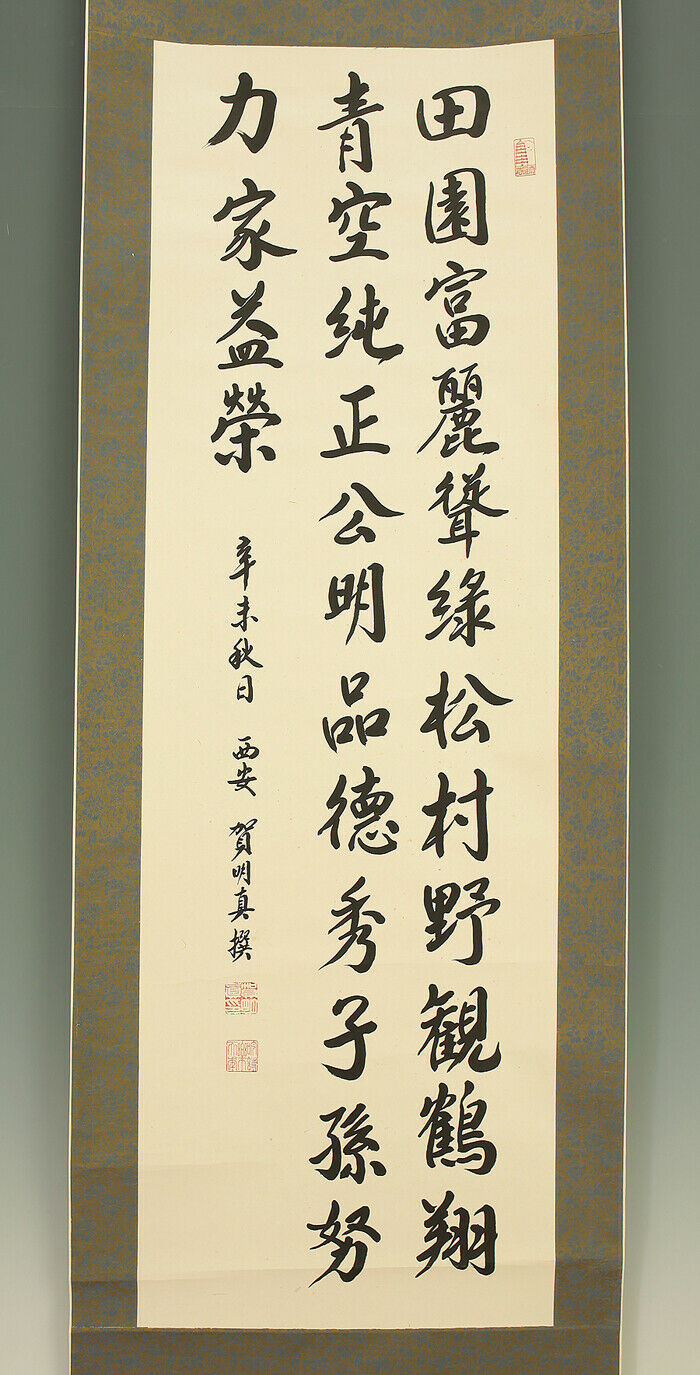 田園富麗聳緑松村野観鶴翔
青空純正公明品德秀子孫努
力家益榮
辛未秋日 西安 賀明真撰